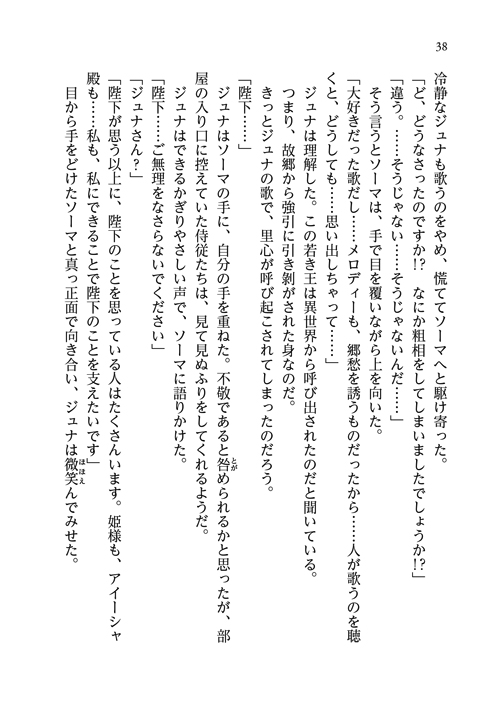 38
冷静なジュナも歌うのをやめ、慌ててソーマへと駆け寄った。
「ど、どうなさったのですか!? なにか粗相をしてしまいましたでしょうか!?」
「違う。……そうじゃない……そうじゃないんだ……」
そう言うとソーマは、手で目を覆いながら上を向いた。
「大好きだった歌だし……メロディーも、郷愁を誘うものだったから……人が歌うのを聴
くと、どうしても……思い出しちゃって……」
ジュナは理解した。この若き王は異世界から呼び出されたのだと聞いている。
つまり、故郷から強引に引き剝がされた身なのだ。
きっとジュナの歌で、里心が呼び起こされてしまったのだろう。
「陛下……」
ジュナはソーマの手に、自分の手を重ねた。不敬であると咎められるかと思ったが、部
屋の入り口に控えていた侍従たちは、見て見ぬふりをしてくれるようだ。
ジュナはできるかぎりやさしい声で、ソーマに語りかけた。
「陛下……ご無理をなさらないでください」
「ジュナさん?」
「陛下が思う以上に、陛下のことを思っている人はたくさんいます。姫様も、アイーシャ
殿も……私も、私にできることで陛下のことを支えたいです」
目から手をどけたソーマと真っ正面で向き合い、ジュナは微笑んでみせた。